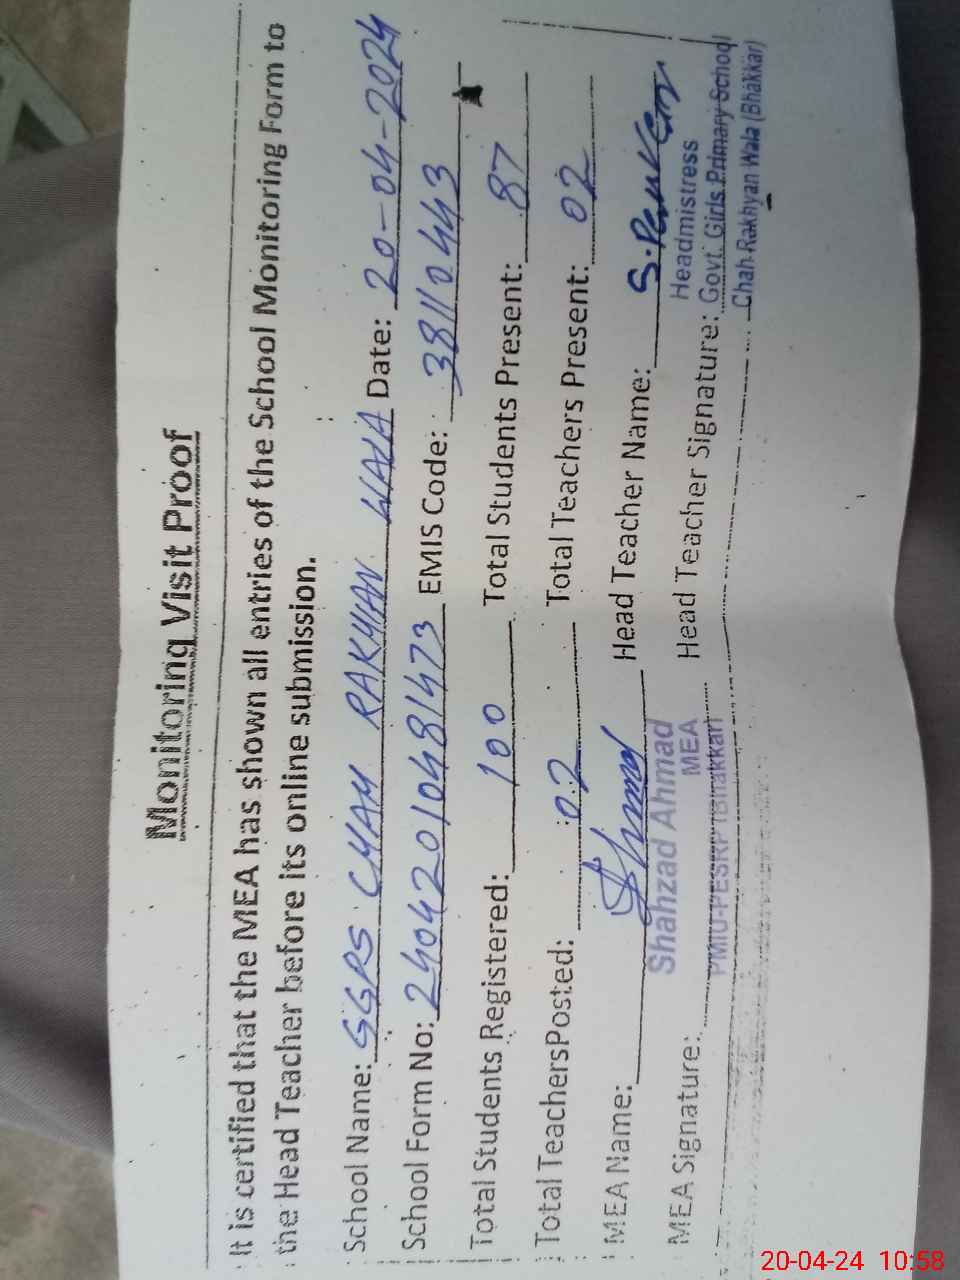 Monitoring Visit Proof
It is certified that the MEA has shown all entries of the School Monitoring Form to
the Head Teacher before its online submission.
School Name: GGPS CHAH RAKHIAN WALA Date: 20-04-2024
School Form No: 24042010481473 EMIS Code: 38110443
Total Students Registered: 100 Total Students Present: 87
Total TeachersPosted: 02 Total Teachers Present: 02
MEA Name: Head Teacher Name: S.Parveen
Shahzad Ahmad
MEA
PMIU-PESRP (Bhakkar)
Headmistress
MEA Signature: Head Teacher Signature: Govt. Girls Primary School
Chah Rakhyan Wala (Bhakkar)
20-04-24 10:58